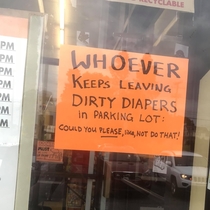 RECYCLABLE
PM
PM
PM
PM
PM
PM
M
WHOEVER
KEEPS LEAVING
DIRTY DIAPERS
IN PARKING LOT:
COULD YOU PLEASE, LIKE, NOT DO THAT!